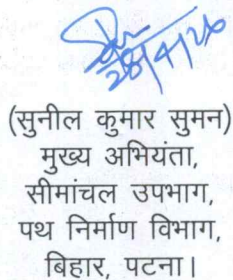 28/4/26
(सुनील कुमार सुमन)
मुख्य अभियंता,
सीमांचल उपभाग,
पथ निर्माण विभाग,
बिहार, पटना।